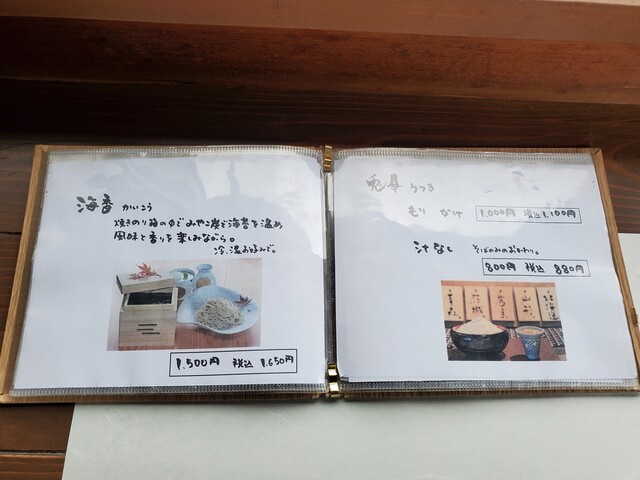 海香 かいこう
焼きのり箱の中でみやこ炭で海苔を温め
風味と香りを楽しみながら。
冷、温お好みで。
1.500円 税込 1.650円
うつき
もり かけ
1.000円 税込 1.100円
汁なし そばのみのおかわり。
800円 税込 880円
北海道
山形
茨城